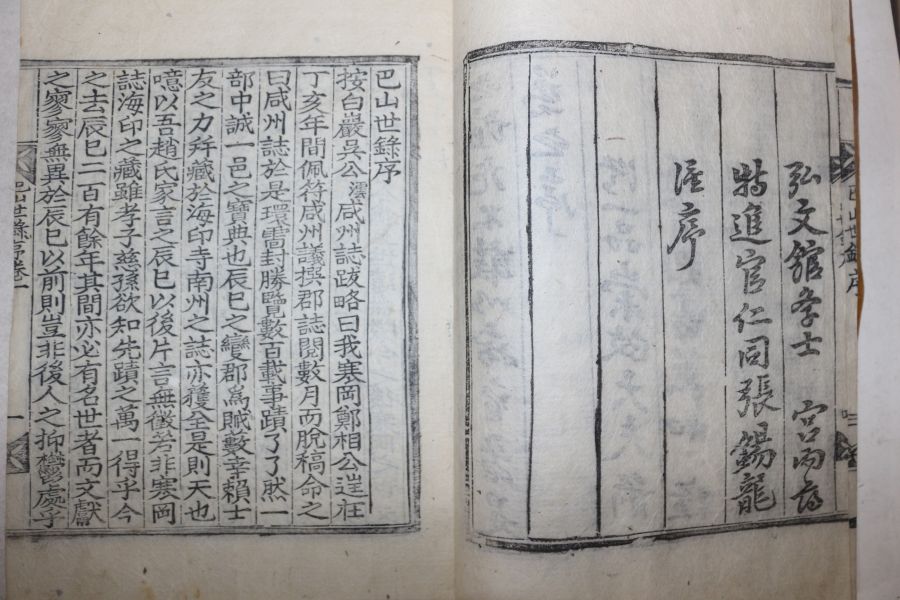 弘文館學士 宮內府
特進官仁同張錫龍
謹序
巴山世錄序
巴山世錄序
按白巖吳公澐咸州誌跋略曰我寒岡鄭相公逑在
丁亥年間佩符咸州議撰郡誌閱數月而脫稿命之
曰咸州誌於是環雷封勝覽數百載事蹟了了然一
部中誠一邑之寶典也辰巳之變郡爲賊數幸賴士
友之力幷藏於海印寺南州之誌亦獲全是則天也
噫以吾趙氏家言之辰巳以後片言無徵若非寒岡
誌海印之藏雖孝子慈孫欲知先蹟之萬一得乎今
之去辰巳二百有餘年其間亦必有名世者而文獻
之寥寥無異於辰巳以前則豈非後人之抑鬱處乎
巴山世錄序卷一
一